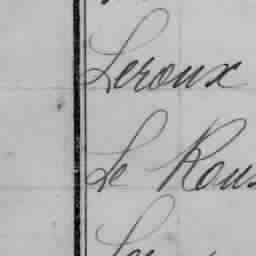 Leroux
Le Rous